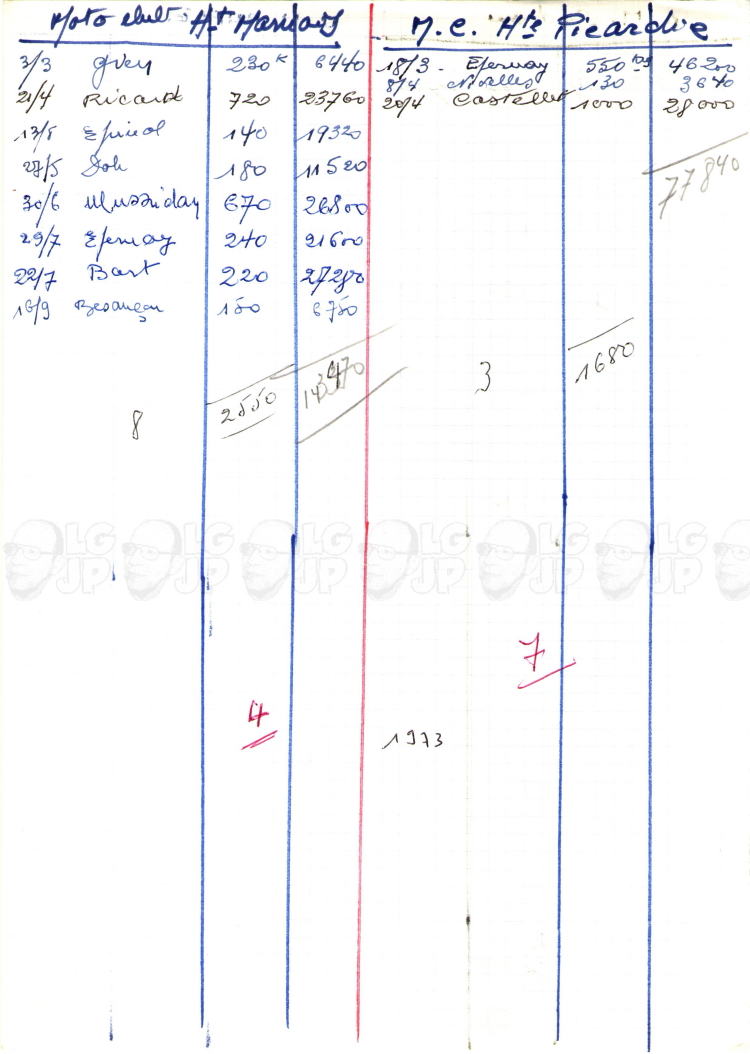 Moto club Ht Marnais
3/3 Grey 230k 6440
21/4 Ricard 720 23760
13/5 Epinal 140 19320
27/5 Dole 180 11520
30/6 Mussidan 670 26800
29/7 Epernay 240 21600
22/7 Bart 220 27280
16/9 Besançon 150 6750
8 2550
M.C. Hte Picardie
18/3 - Epernay 550 kgs 46200
8/4 - Noilles 130 3640
29/4 Castellet 1000 28000
77840
3 1680
4
7
1973
LG JP
LG JP
LG JP
LG JP
LG JP
LG JP